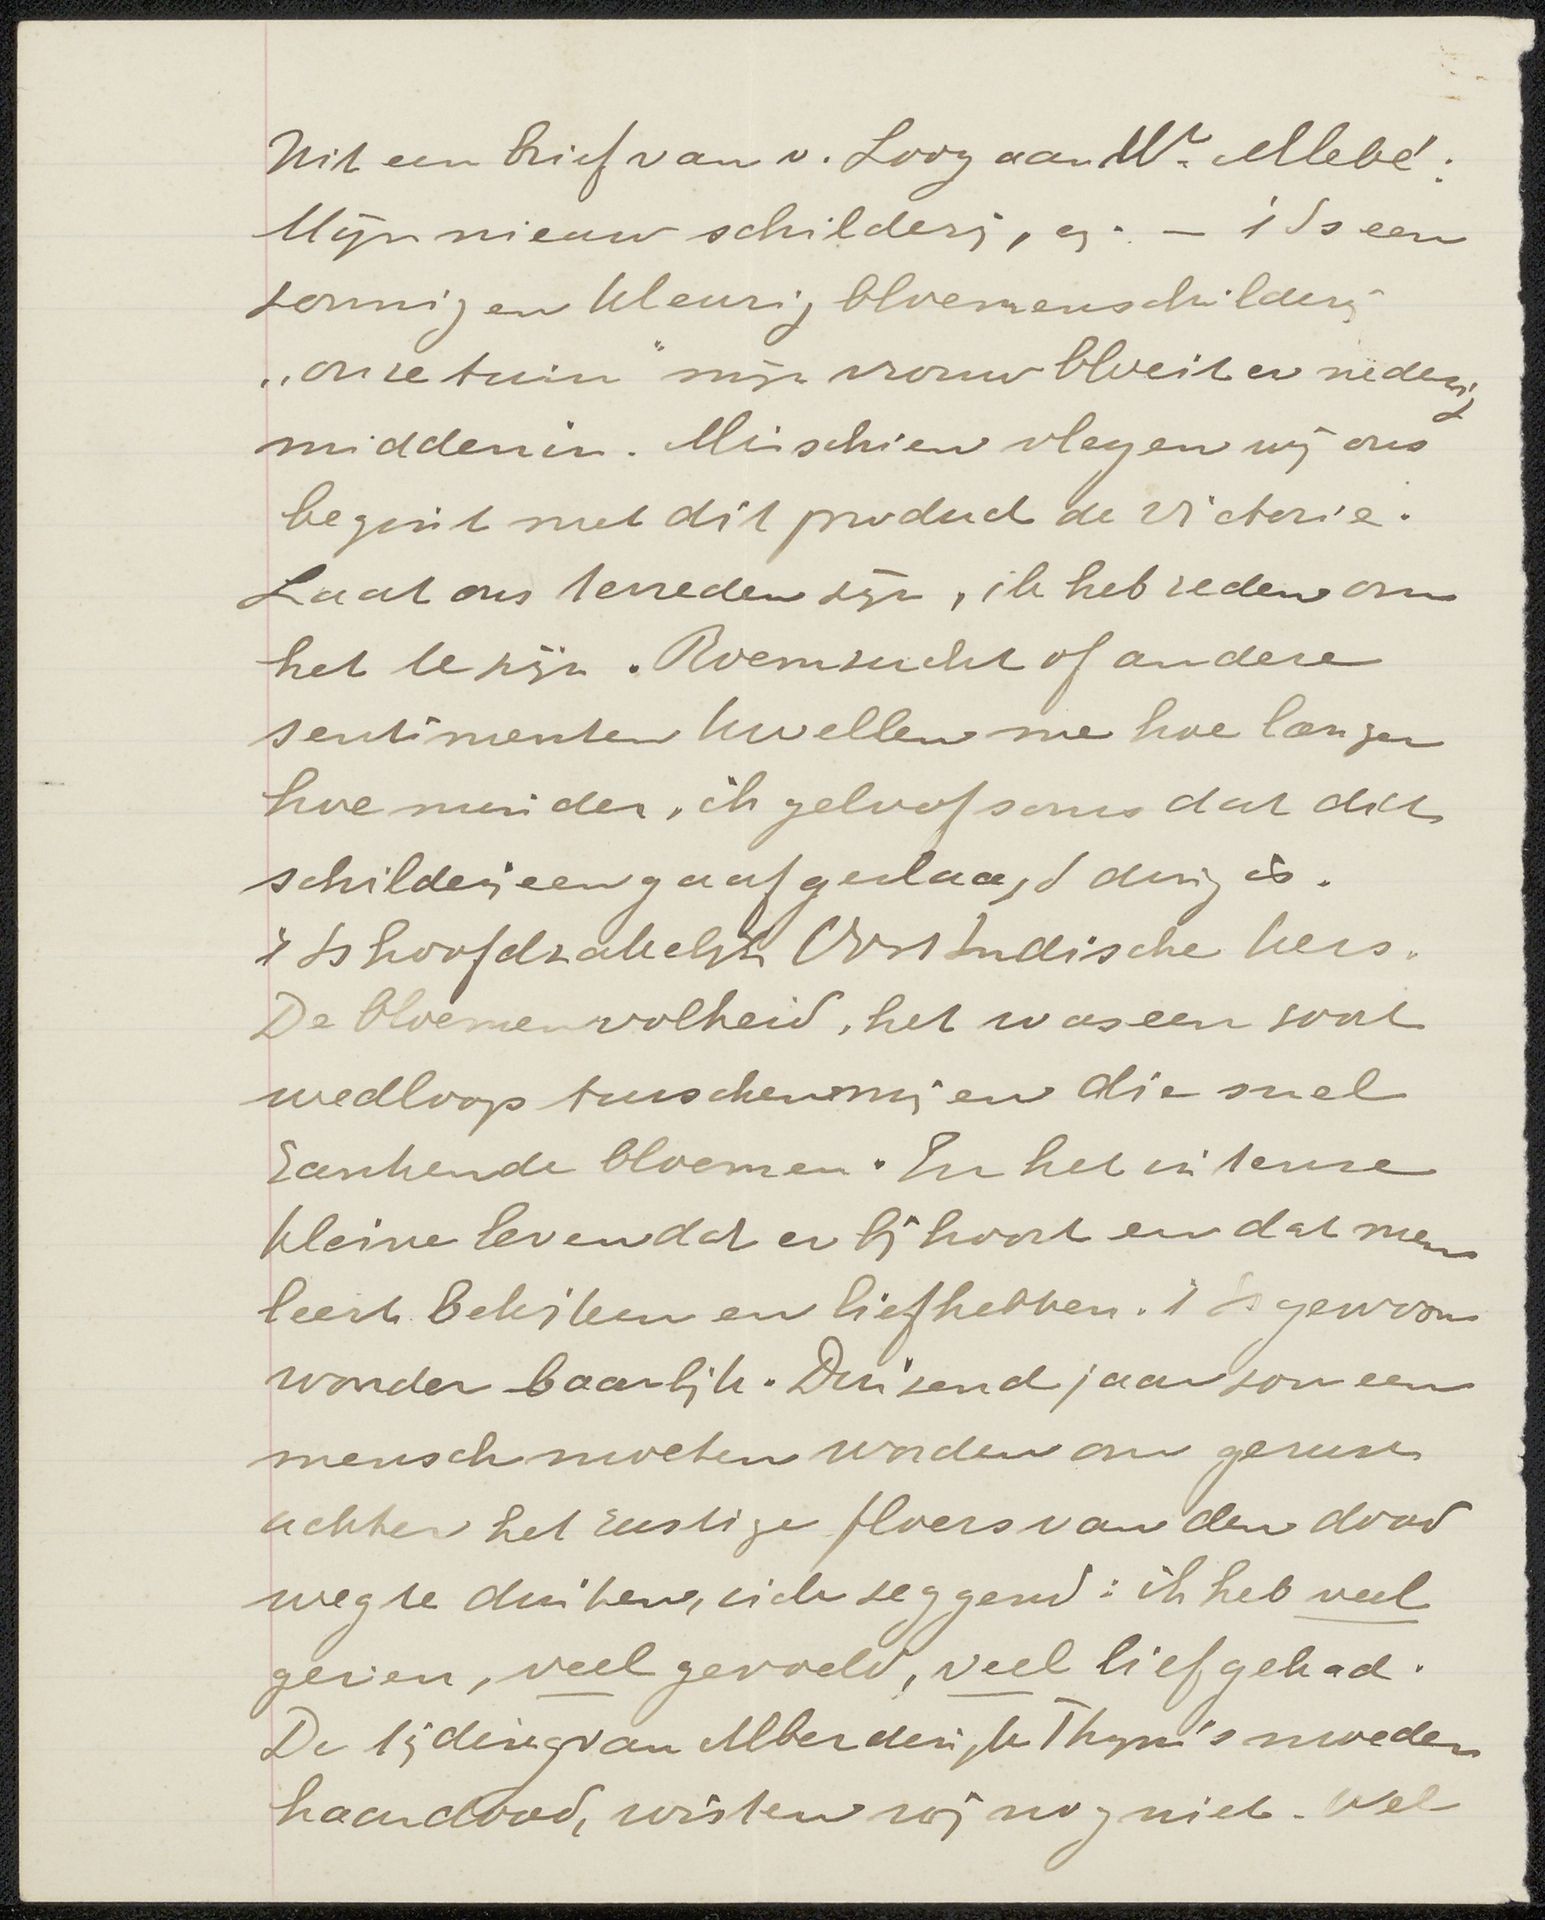 Uit een brief van v. Looy aan Mr. Allebé:
Mijn nieuw schilderij, - 't Is een
zonnig en kleurig bloemenschilderij
„onze tuin" mijn vrouw bloeit er nederig
middenin. Misschien vlegen wij ons
begint met dit product de victorie.
Laat ons tevreden zijn, ik heb reden om
het te zijn. Roemzucht of andere
sentimenten kwellen me hoe langer
hoe minder, ik geloof soms dat dit
schilderij een gaaf geslaagd ding is.
't Is hoofdzakelijk Oost Indische kers.
De bloemenvolheid, het was een soort
wedloop tusschen mij en die snel
rankende bloemen. En het intense
kleine leven dat er bij hoort en dat men
leert bekijken en liefhebben. 't Is gewoon
wonder baarlijk. Duizend jaar zou een
mensch moeten worden om gerust
achter het rustige floers van den dood
weg te duiken, zich zeggend: ik heb veel
gezien, veel gevoeld, veel liefgehad.
De tijding van Alberdingk Thym's moeder
haar dood, wisten wij nog niet. Wel